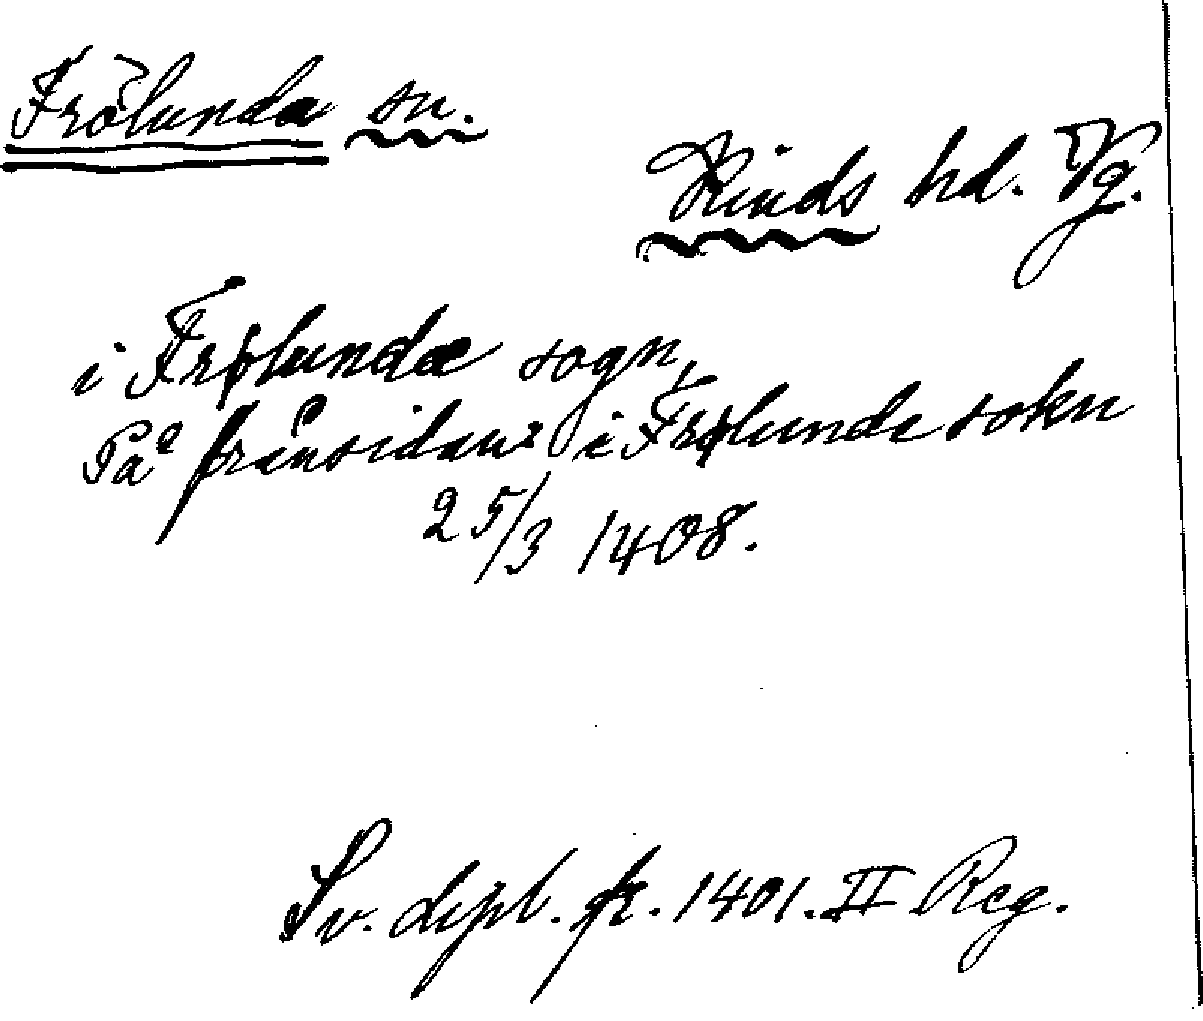 Frölunda sn.
Kinds hd. Vg.
i Frølundæ sogn,
På frånsidan: i Frølunde sokn
25/3 1408.
Sv. dipl. fr. 1401. II Reg.